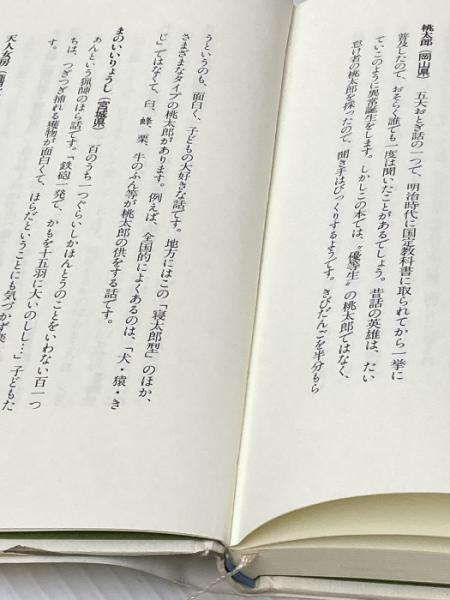 桃太郎（岡山県） 五大おとぎ話の一つで、明治時代に国定教科書に取られてから一挙に
普及したので、おそらく誰でも一度は聞いたことがあるでしょう。昔話の英雄は、たい
ていこのように異常誕生をします。しかしこの本では、〝優等生〟の桃太郎ではなく、
怠け者の桃太郎を採ったので、聞き手はびっくりするようです。きびだんごを半分もら
うというのも、面白く、子どもの大好きな話です。地方にはこの「寝太郎型」のほか、
さまざまなタイプの桃太郎があります。例えば、全国的によくあるのは、「犬・猿・き
じ」ではなくて、臼、蜂、栗、牛のふん等が桃太郎の供をする話です。
まのいいりょうし（宮城県） 百のうち一つぐらいしかほんとうのことをいわない百一つ
あんという猟師のほら話です。「鉄砲一発で、かもを十五羽に大いのしし…」子どもた
ちは、つぎつぎ捕れる獲物が面白くて、ほらだということにも気づかず
す。
天人女房